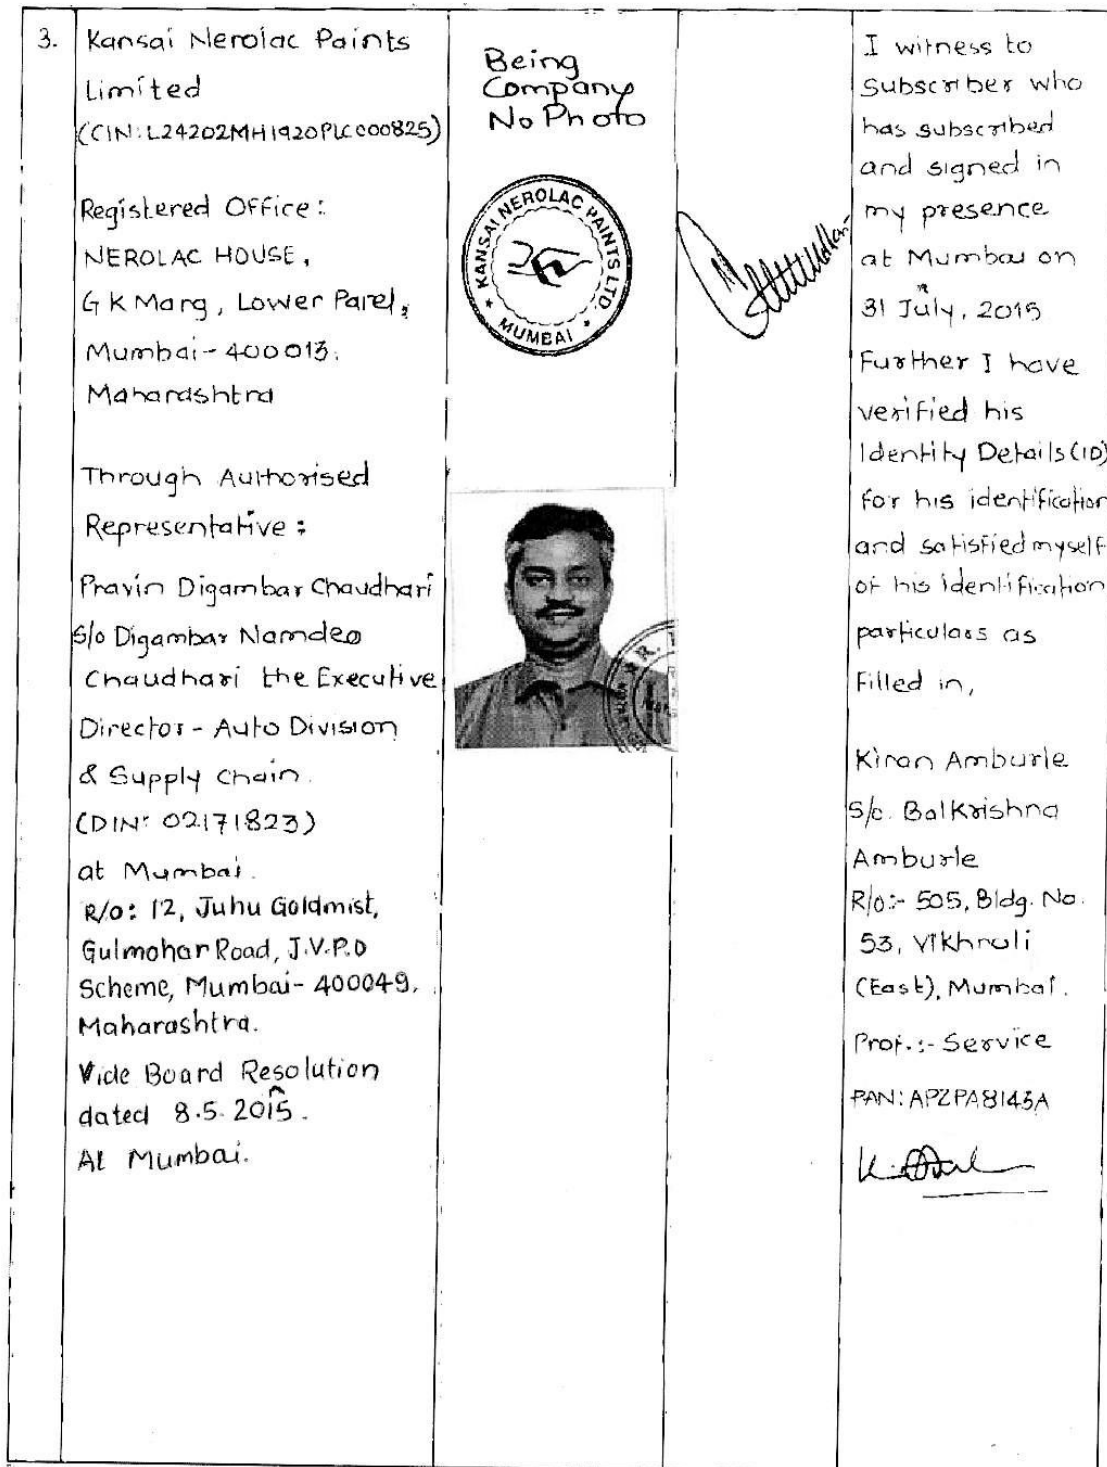 3.
Kansai Nerolac Paints
Limited
(CIN: L24202MH1920PLC000825)
Registered Office:
NEROLAC HOUSE,
G K Marg, Lower Parel,
Mumbai-400013.
Maharashtra
Through Authorised
Representative:
Pravin Digambar Chaudhari
S/o Digambar Namdeo
Chaudhari the Executive
Director - Auto Division
& Supply Chain.
(DIN: 02171823)
at Mumbai.
R/o: 12, Juhu Goldmist,
Gulmohar Road, J.V.P.D
Scheme, Mumbai-400049.
Maharashtra.
Vide Board Resolution
dated 8.5.2015.
At Mumbai.
Being
Company
No Photo
KANSAI NEROLAC PAINTS LTD.
MUMBAI
I witness to
Subscriber who
has subscribed
and signed in
my presence
at Mumbai on
31 July, 2015
Further I have
verified his
Identity Details (ID)
for his identification
and satisfied myself
of his identification
particulars as
filled in,
Kiran Amburle
S/o. Balkrishna
Amburle
R/o:- 505, Bldg. No.
53, Vikhroli
(East), Mumbai.
Prof.:- Service
PAN: APZPA8145A